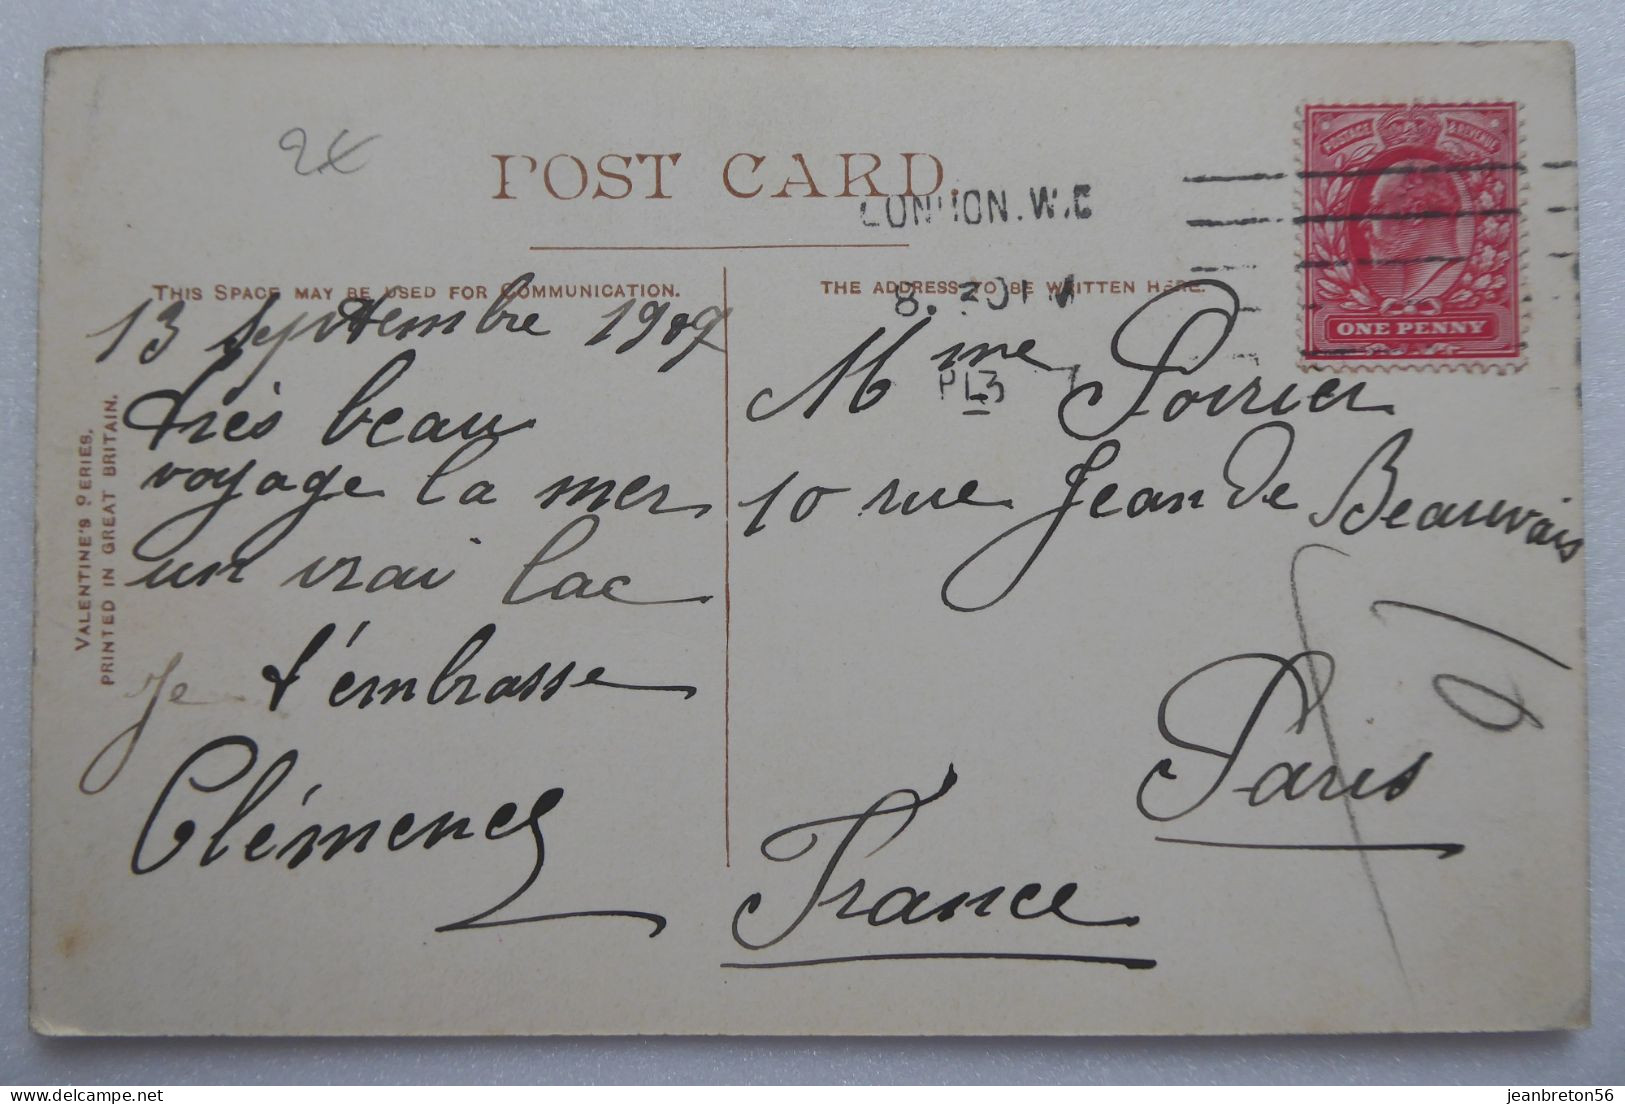 2€
POST CARD.
LONDON.W.C
THIS SPACE MAY BE USED FOR COMMUNICATION.
THE ADDRESS TO BE WRITTEN HERE.
POSTAGE & REVENUE
ONE PENNY
13 septembre 1909
très beau
voyage la mer
un vrai lac
Je t'embrasse
Clémence
Mme Poirier
10 rue Jean de Beauvais
Paris
France
VALENTINE'S SERIES.
PRINTED IN GREAT BRITAIN.
jeanbreton56